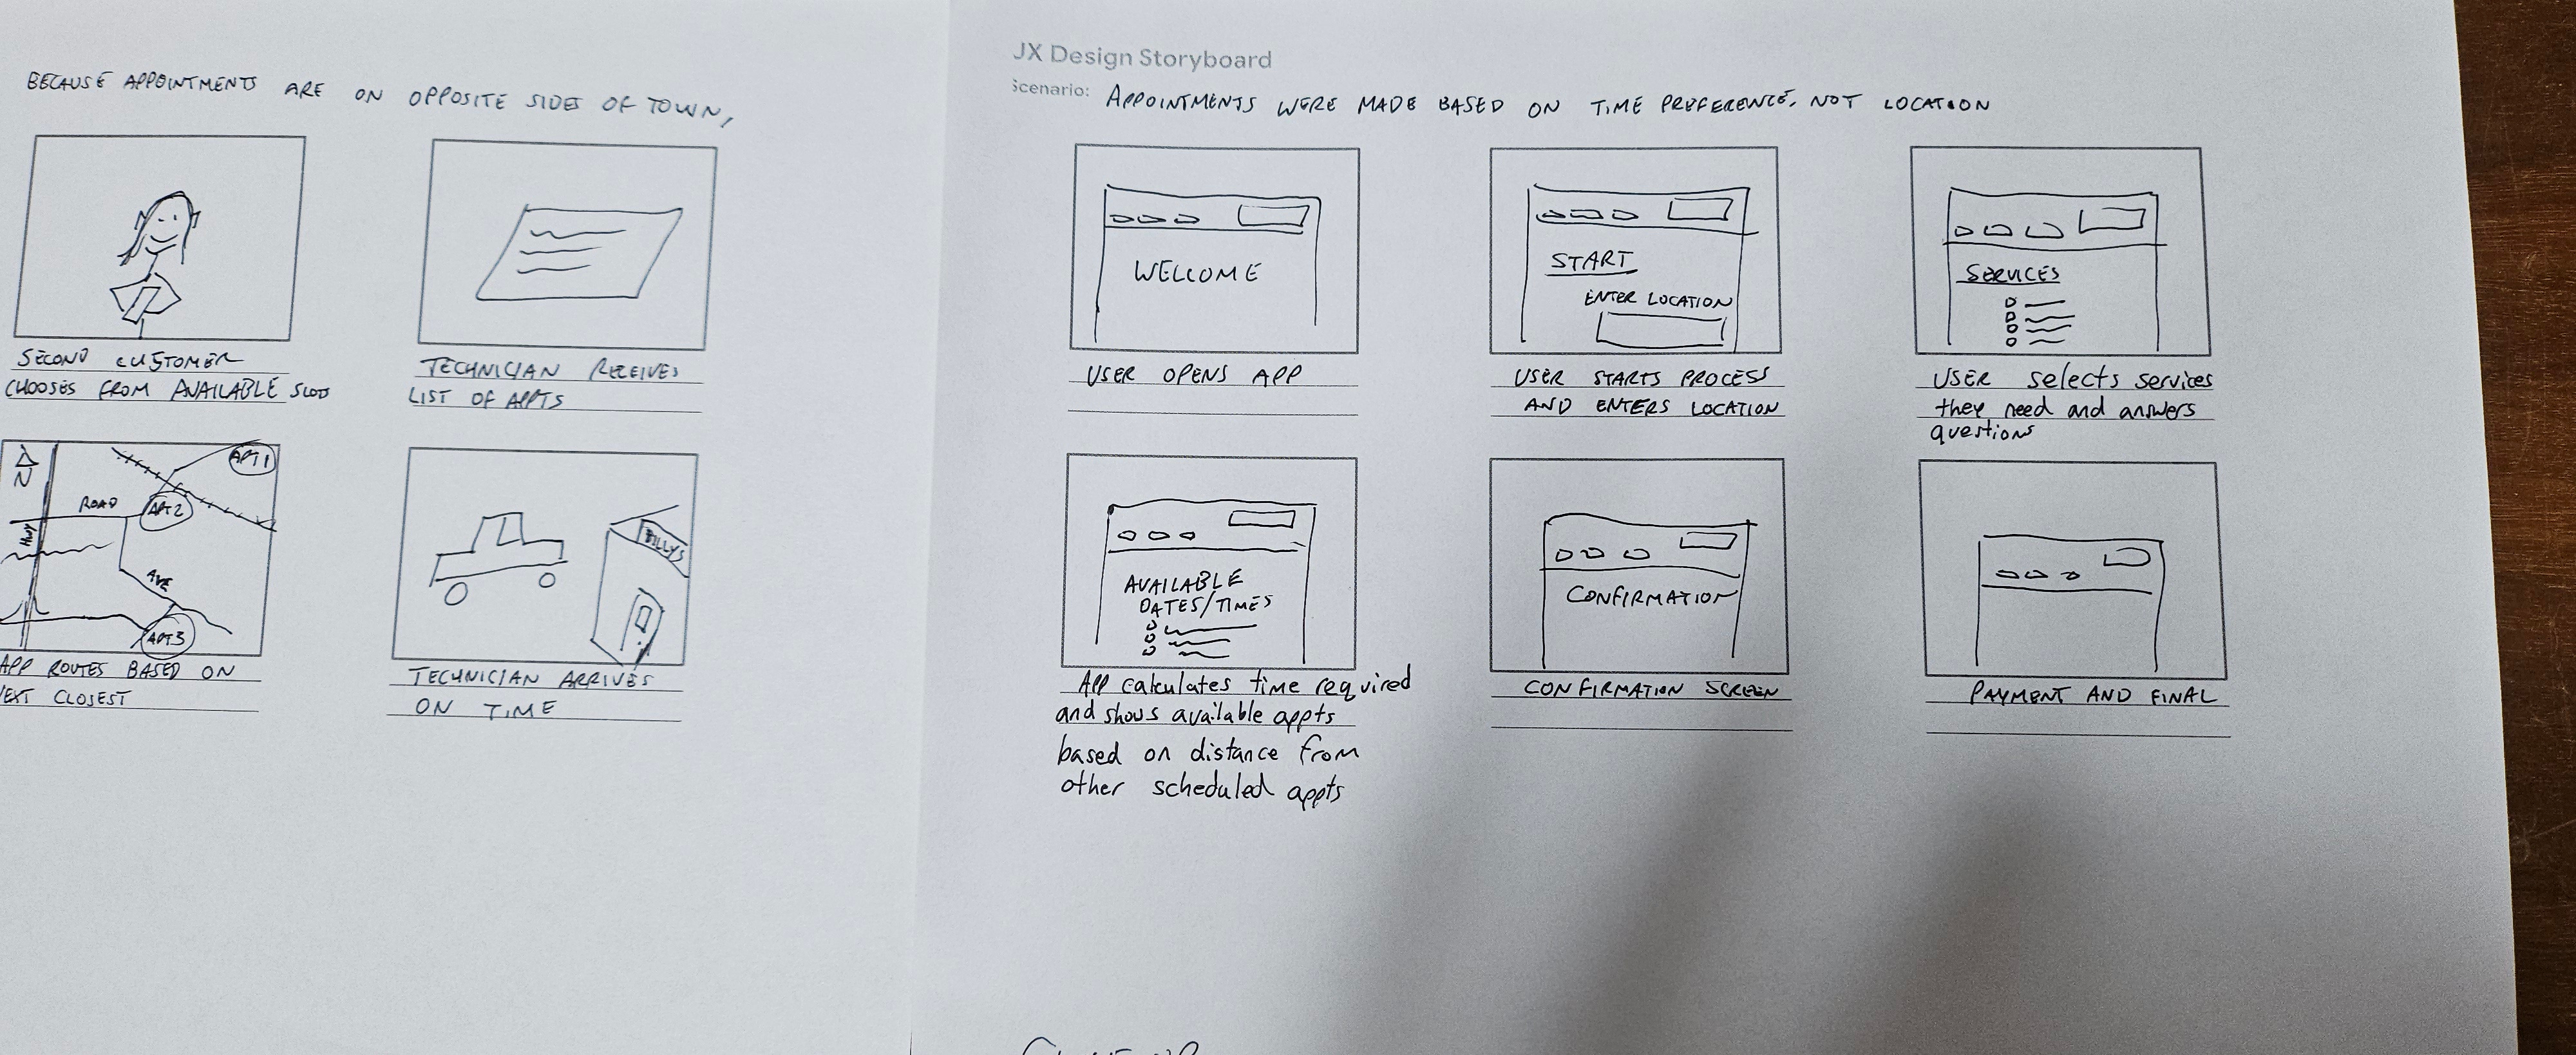 BECAUSE APPOINTMENTS ARE ON OPPOSITE SIDES OF TOWN,
SECOND CUSTOMER
CHOOSES FROM AVAILABLE SLOTS
TECHNICIAN RECEIVES
LIST OF APPTS
N
HWY
ROAD
AVE
APT1
APT2
APT3
APP ROUTES BASED ON
CLOSEST
BILLYS
TECHNICIAN ARRIVES
ON TIME
JX Design Storyboard
Scenario: APPOINTMENTS WERE MADE BASED ON TIME PREFERENCE, NOT LOCATION
WELCOME
USER OPENS APP
START
ENTER LOCATION
USER STARTS PROCESS
AND ENTERS LOCATION
SERVICES
USER selects services
they need and answers
questions
AVAILABLE
DATES/TIMES
App calculates time required
and shows available appts
based on distance from
other scheduled appts
CONFIRMATION
CONFIRMATION SCREEN
PAYMENT AND FINAL